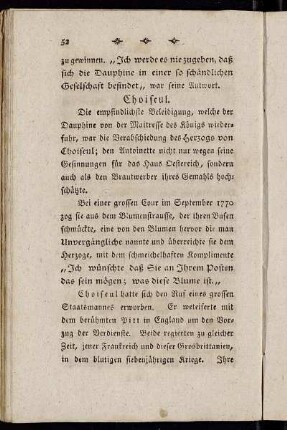 52
zu gewinnen. „Ich werde es nie zugeben, daß
sich die Dauphine in einer so schändlichen
Gesellschaft befindet„, war seine Antwort.
Choiseul.
Die empfindlichste Beleidigung, welche der
Dauphine von der Maitresse des Königs wieder-
fuhr, war die Verabschiedung des Herzogs von
Choiseul; den Antoinette nicht nur wegen seine
Gesinnungen für das Haus Oesterreich, sondern
auch als den Brautwerber ihres Gemahls hoch-
schätzte.
Bei einer grossen Cour im September 1770
zog sie aus dem Blumenstrausse, der ihren Busen
schmückte, eine von den Blumen hervor die man
Unvergängliche nannte und überreichte sie dem
Herzoge, mit dem schmeichelhaften Komplimente
„Ich wünschte daß Sie an Ihrem Posten
das sein mögen; was diese Blume ist.„
Choiseul hatte sich den Ruf eines grossen
Staatsmannes erworben. Er weteiferte mit
dem berühmten Pitt in England um den Vor-
zug der Verdienste. Beide regierten zu gleicher
Zeit, jener Frankreich und dieser Grosbrittanien,
in dem blutigen siebenjährigen Kriege. Ihre